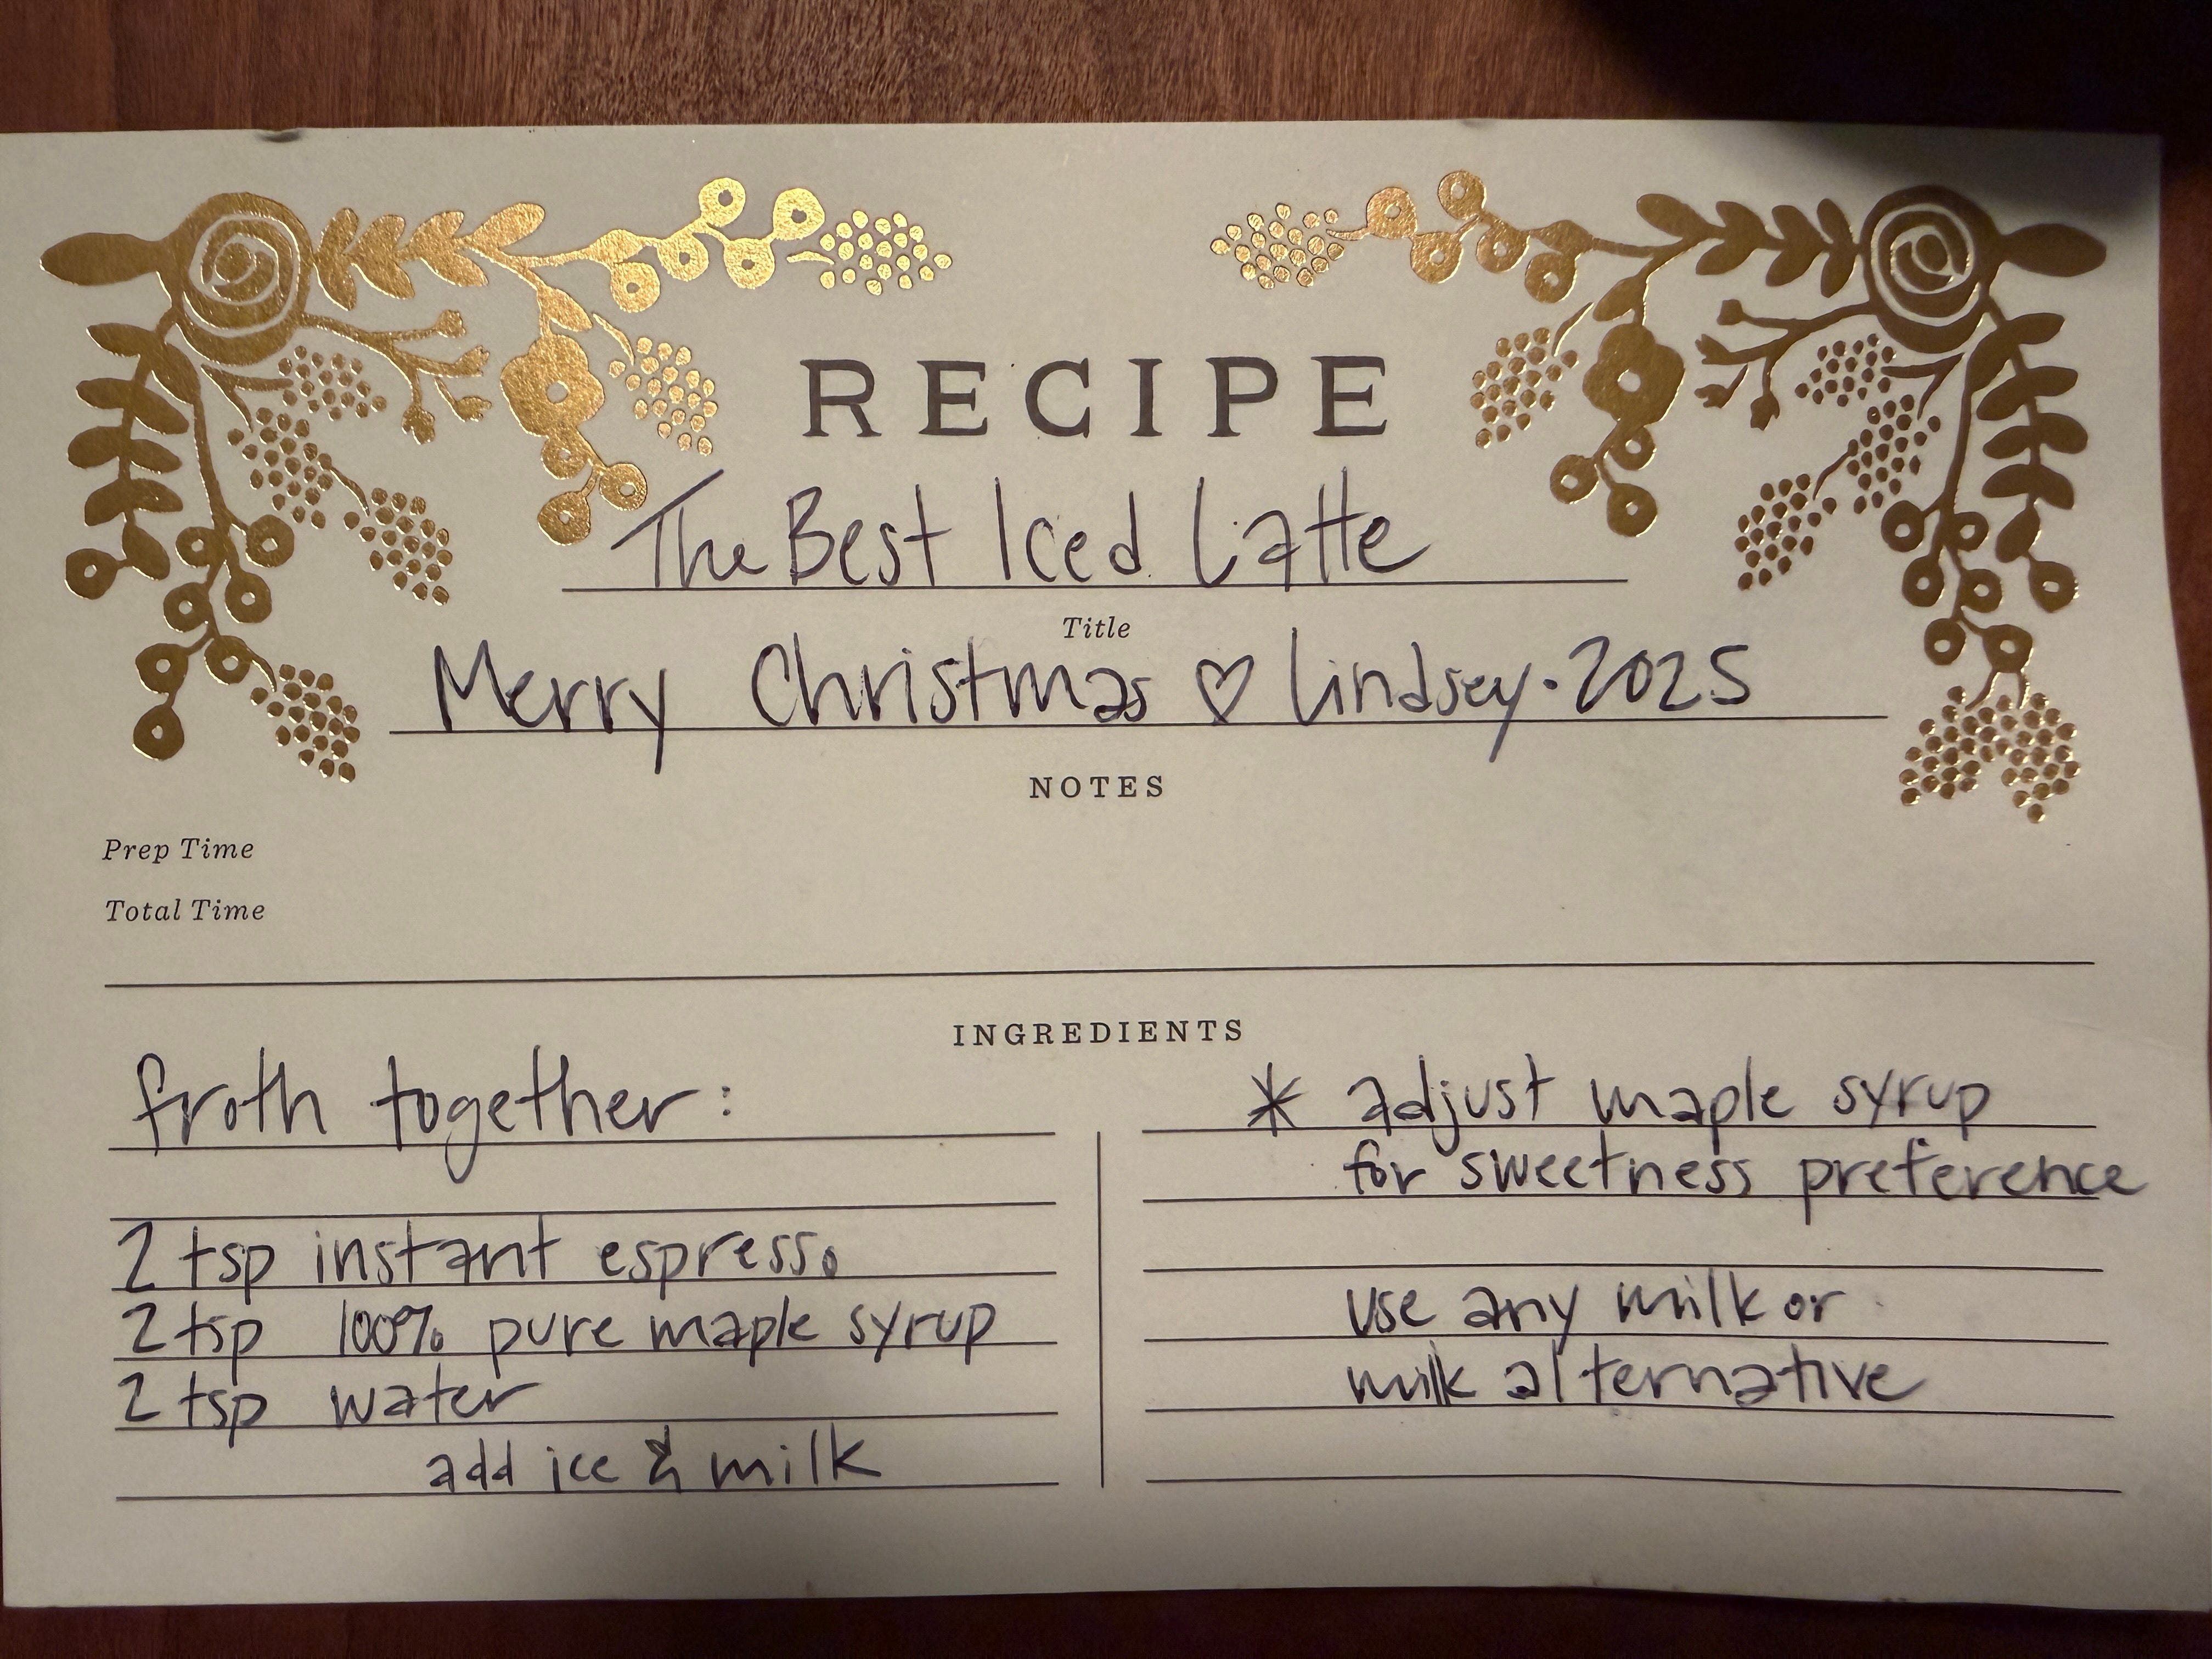 RECIPE
The Best Iced Latte
Title
Merry Christmas ♡ Lindsey · 2025
NOTES
Prep Time
Total Time
INGREDIENTS
froth together:
2 tsp instant espresso
2 tsp 100% pure maple syrup
2 tsp water
add ice & milk
* adjust maple syrup
for sweetness preference
use any milk or
milk alternative